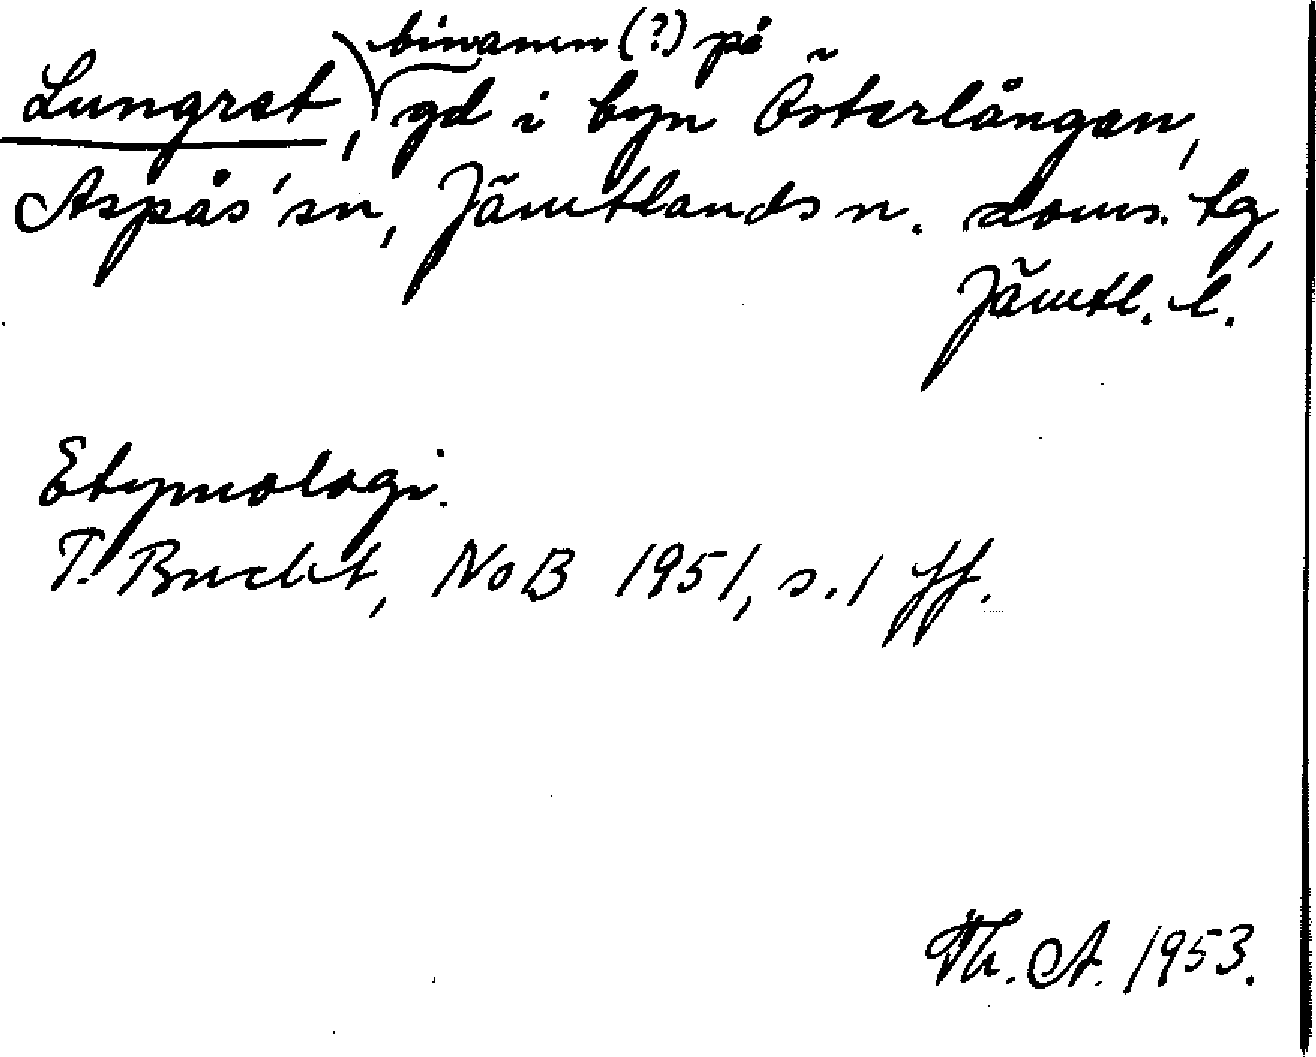 binamn (?) på
Lungret, gd i byn Österlången,
Aspås' sn, Jämtlands n. doms. tg,
Jämtl. l.
Etymologi.
T. Bucht, NoB 1951, s. 1 ff.
Th. A. 1953.